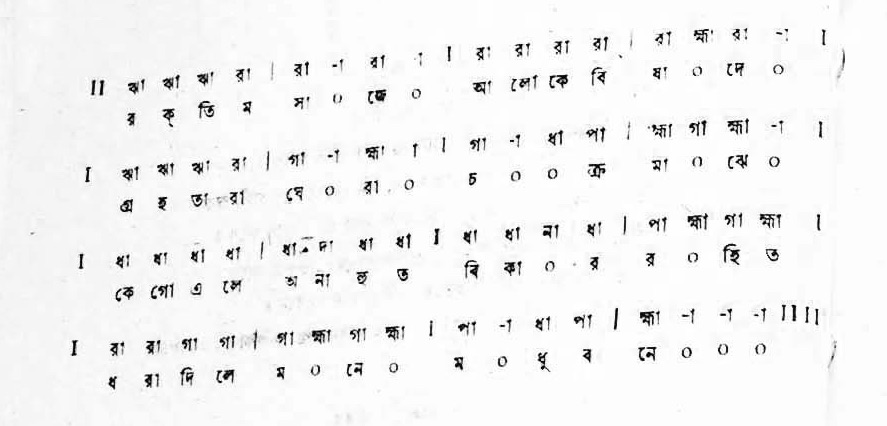 II ঋা ঋা ঋা রা | রা -া রা -া I রা রা রা রা | রা হ্মা রা -া I
র ক্ তি ম সা ০ জে ০ আ লো কে বি ষা ০ দে ০
I ঋা ঋা ঋা রা | গা -া হ্মা া I গা -া ধা পা | হ্মা গা হ্মা -া I
গ্র হ তা রা ঘে ০ রা ০ চ ০ ০ ক্র মা ০ ঝে ০
I ধা ধা ধা ধা | ধা দা ধা ধা I ধা ধা না ধা | পা হ্মা গা হ্মা I
কে গো এ লে অ না হু ত বি কা ০ র র ০ হি ত
I রা রা গা গা | গা হ্মা গা হ্মা I পা -া ধা পা | হ্মা -া -া -া IIII
ধ রা দি লে ম ০ নে ০ ম ০ ধু ব নে ০ ০ ০